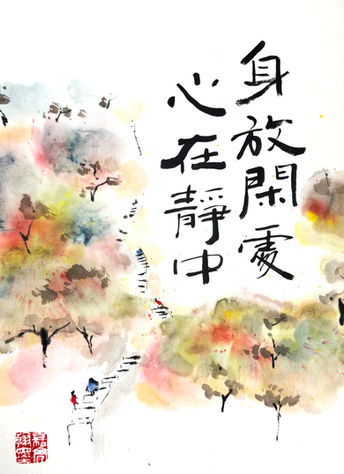 身放閑處
心在靜中